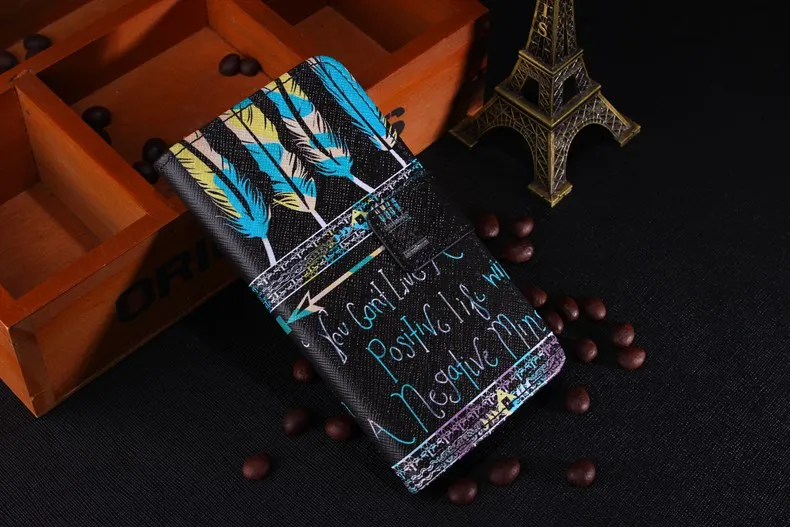 ORI
IS
You Can't Live A
Positive life with
A Negative Min